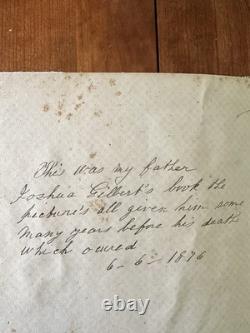 This was my father
Joshua Gilbert's book the
picture's all given him some
many years before his death
which ocured
6 - 6 - 1896
ebay